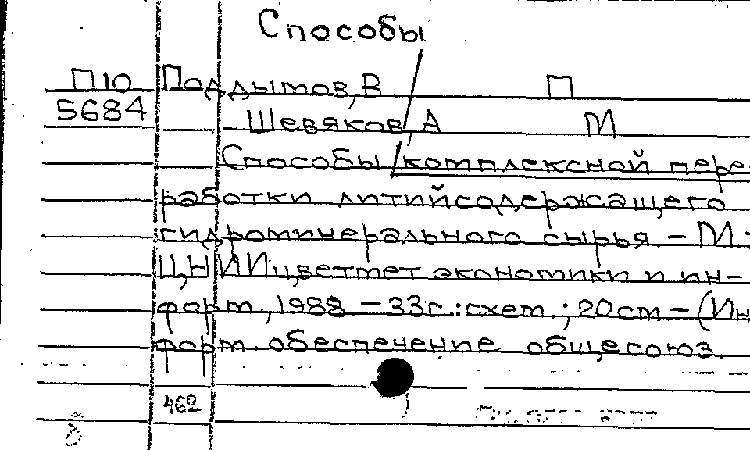 Способы
П10 Поддымов, В П
5684 Шевяков, А М
Способы комплексной пере
работки литийсодержащего
гидроминерального сырья - М.:
ЦНИИцветмет экономики и ин-
форм, 1988 - 33с.:схем.; 20см - (Ин
форм. обеспечение общесоюз.
462